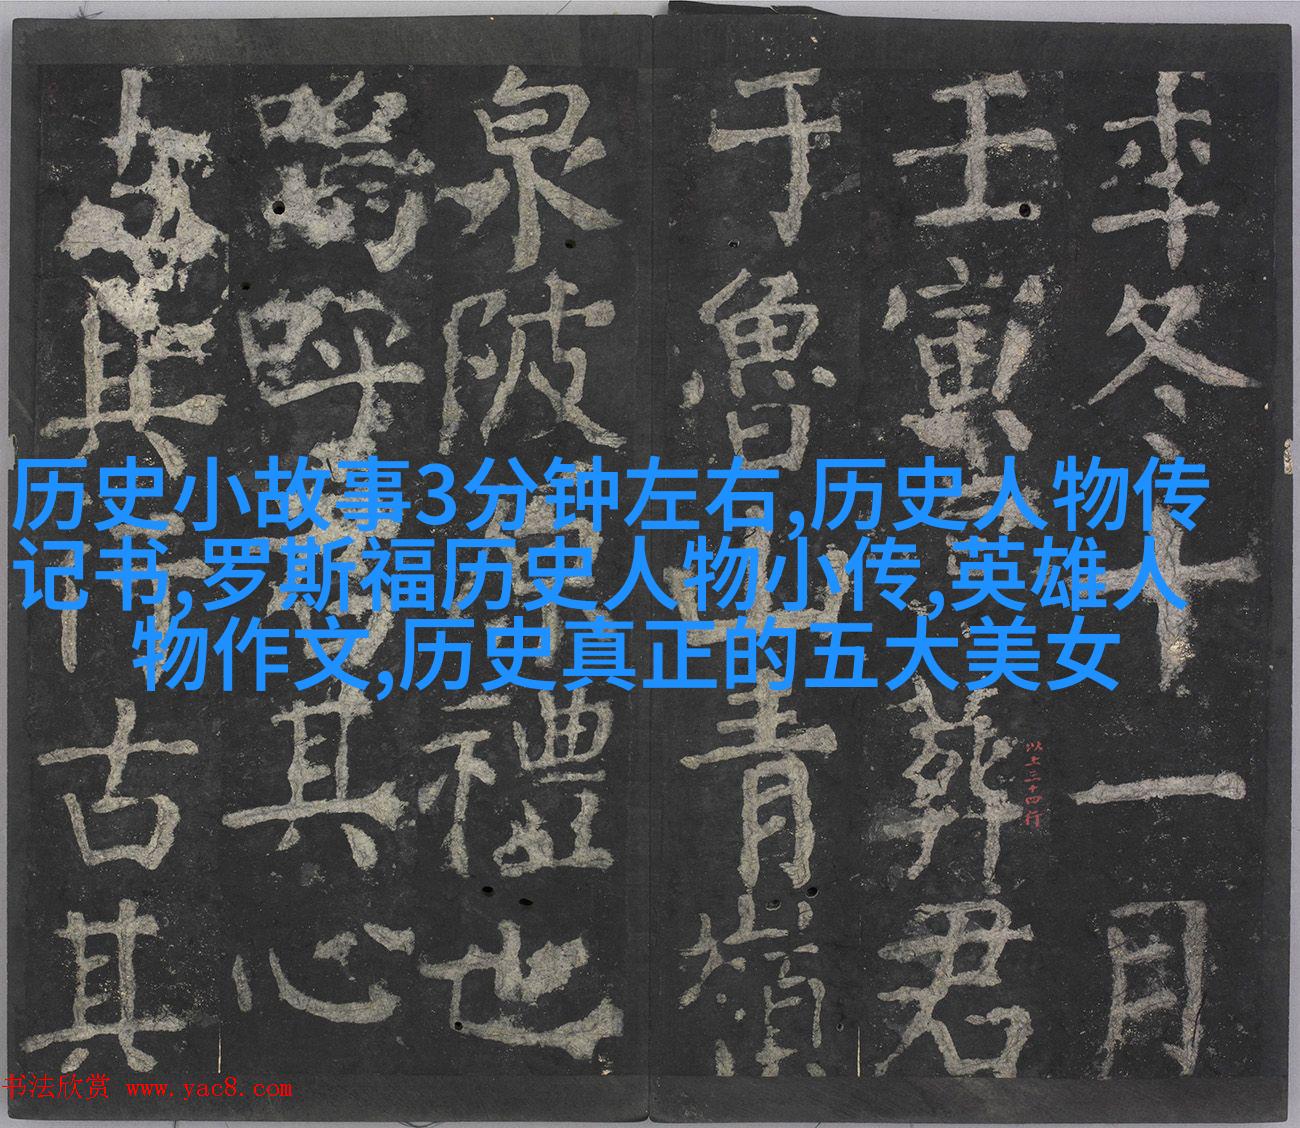 年冬十一月
壬寅葬君
以上三十四行
于魯山青嶺
泉陂禮也
嗚呼其心
其行古其
历史小故事3分钟左右,历史人物传
记书,罗斯福历史人物小传,英雄人
物作文,历史真正的五大美女
书法欣赏 www.yac8.com